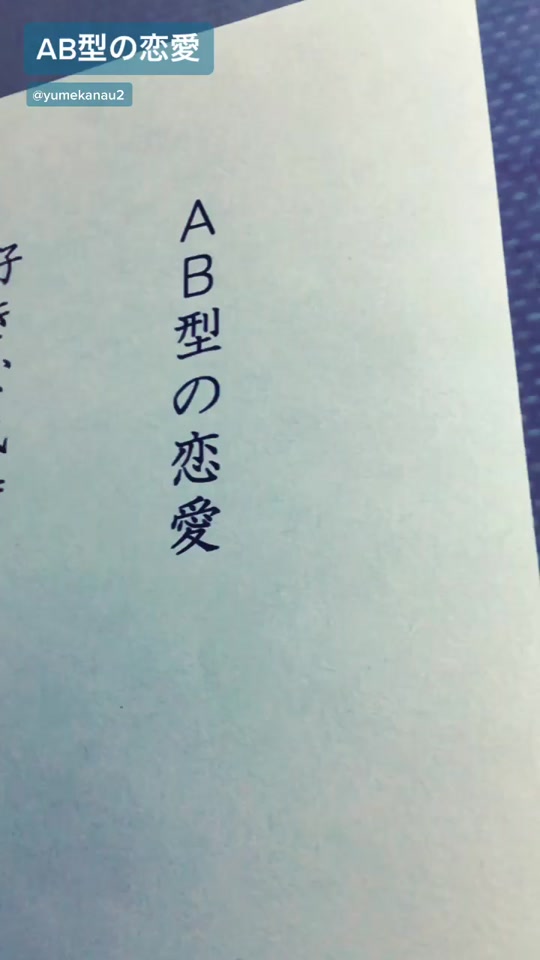 AB型の恋愛
@yumekanau2
AB型の恋愛